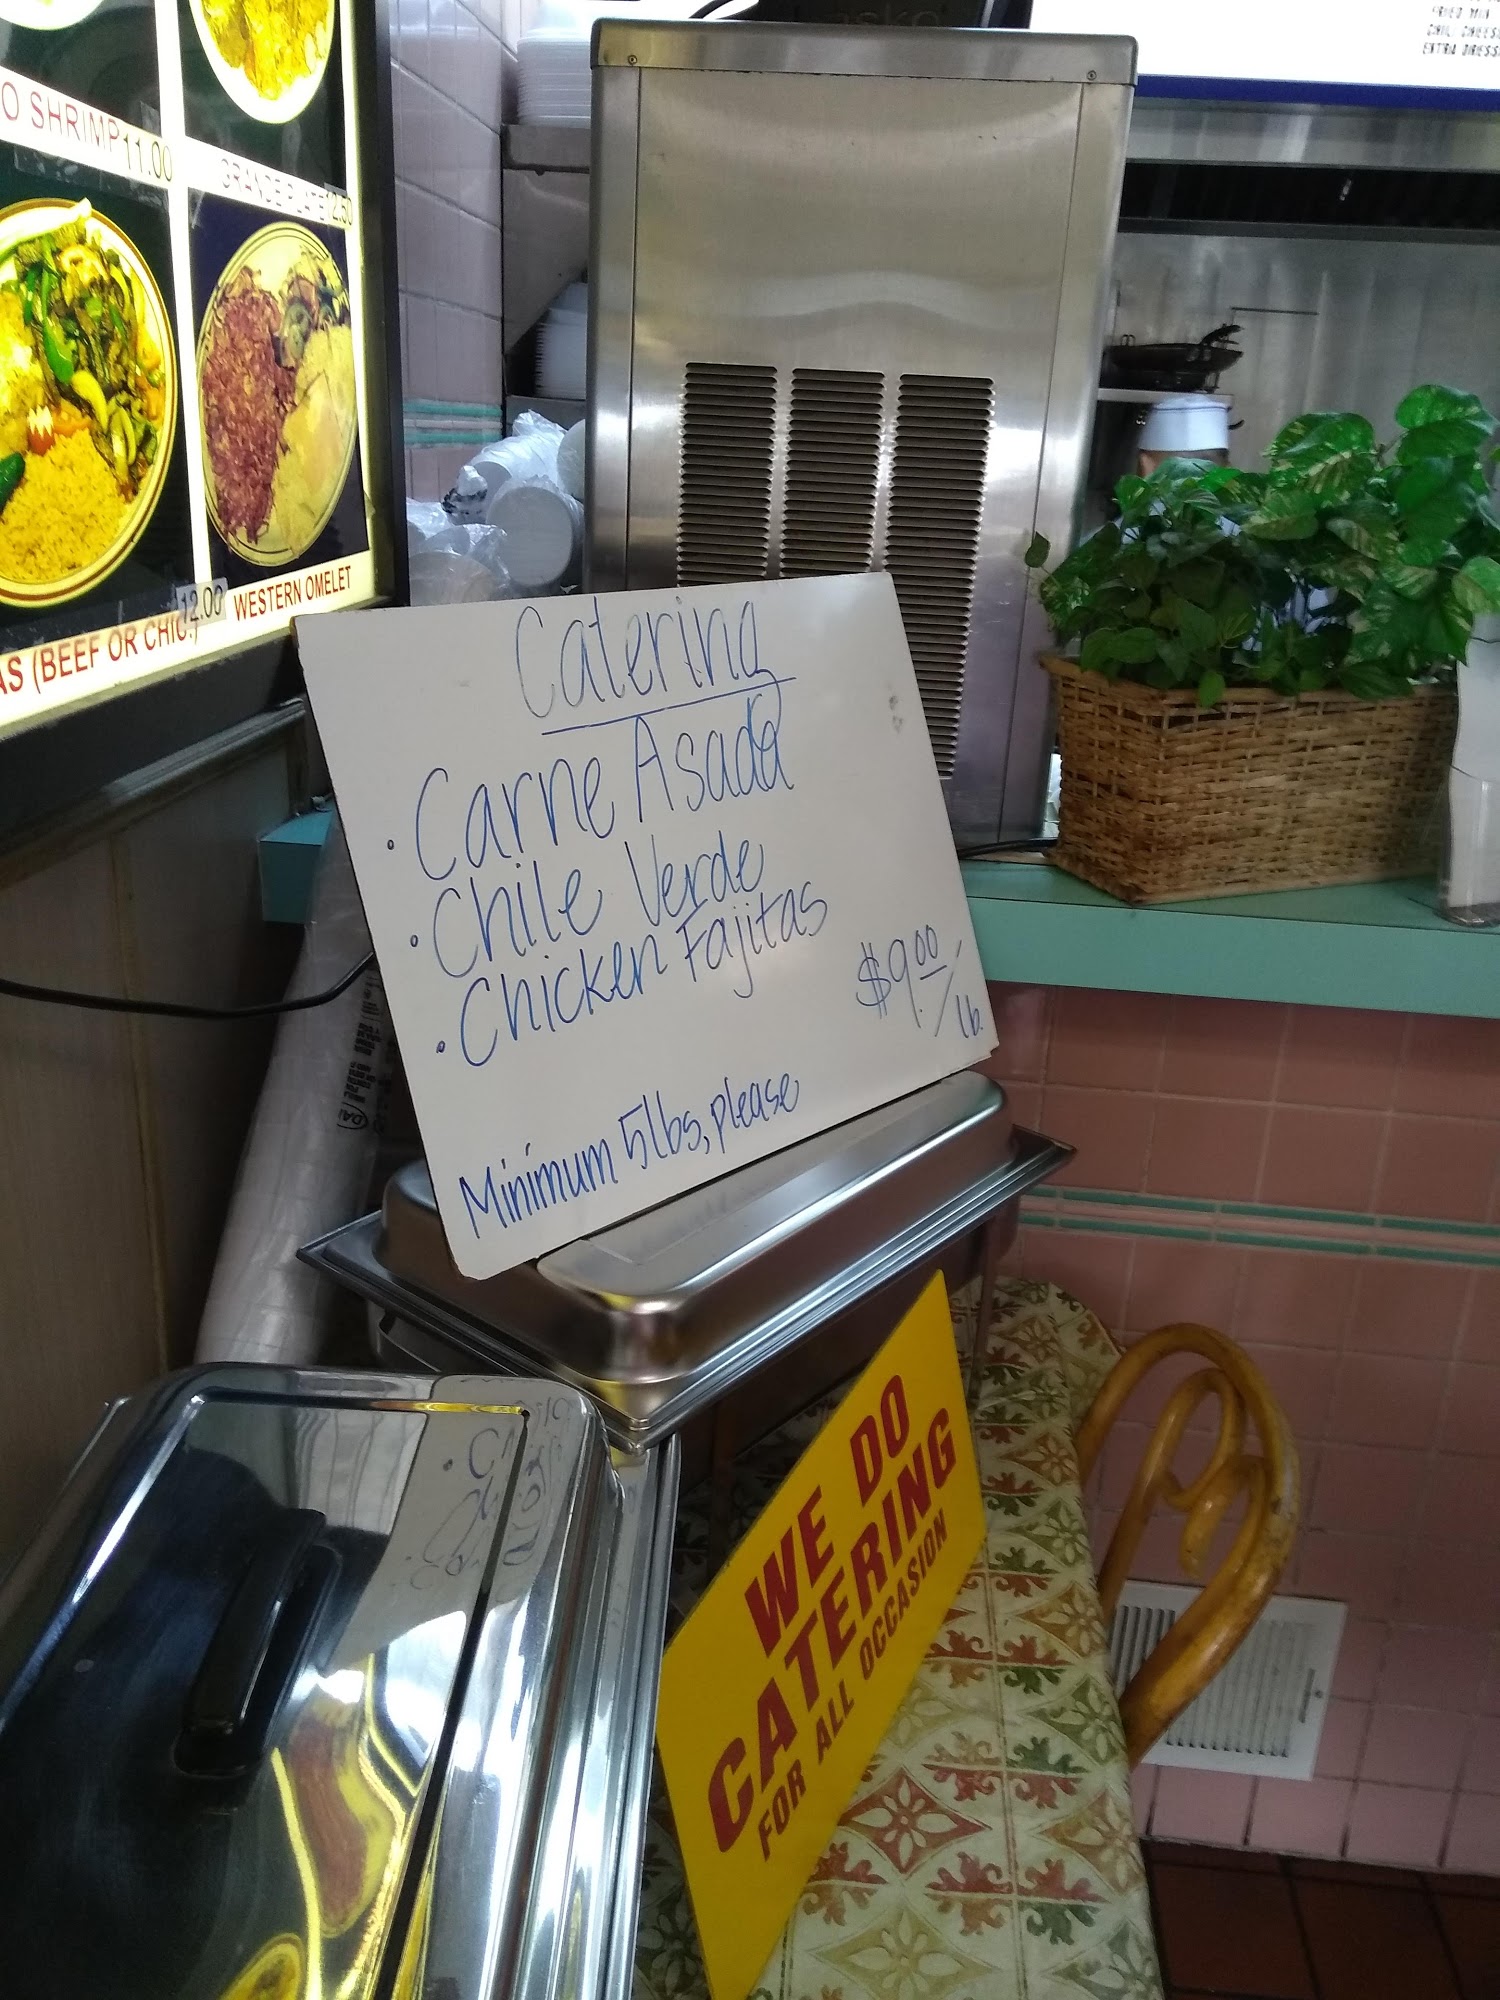 O SHRIMP 11.00
GRANDE PLATE 12.50
AS (BEEF OR CHIC.) 12.00
WESTERN OMELET
EXTRA DRESS
Catering
• Carne Asada
• Chile Verde
• Chicken Fajitas
$9.00/lb.
Minimum 5lbs, please
WE DO
CATERING
FOR ALL OCCASION